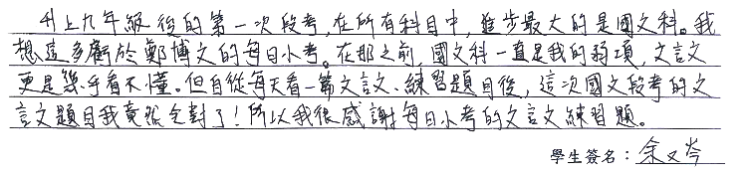 升上九年級後的第一次段考,在所有科目中,進步最大的是國文科。我
想這多虧於鄭博文的每日小考。在那之前,國文科一直是我的弱項,文言文
更是幾乎看不懂。但自從每天看一篇文言文、練習題目後,這次國文段考的文
言文題目我竟然全對了!所以我很感謝每日小考的文言文練習題。
學生簽名:余又岑